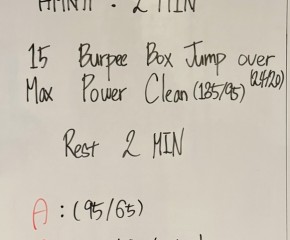 : 2 MIN
15 Burpee Box Jump over (24/20)
Max Power Clean (135/95)
Rest 2 MIN
A : (95/65)